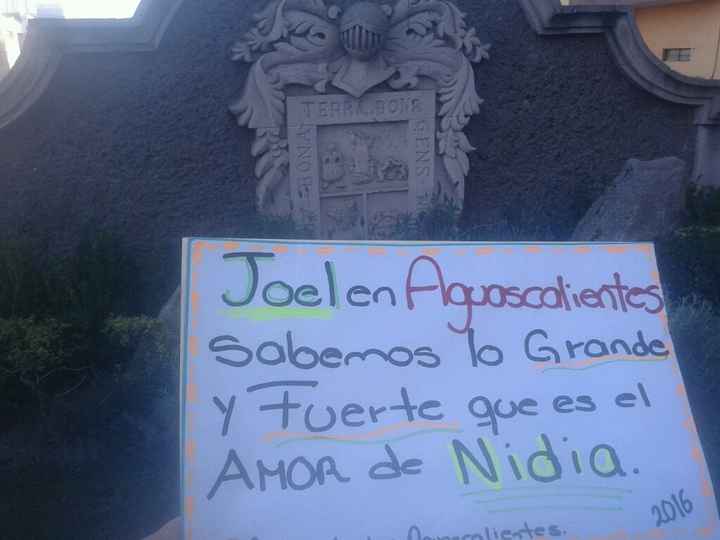 BONA
TERRA.BONA
GENS
Joel en Aguascalientes
Sabemos lo Grande
y Fuerte que es el
AMOR de Nidia.
2016
Aguascalientes.